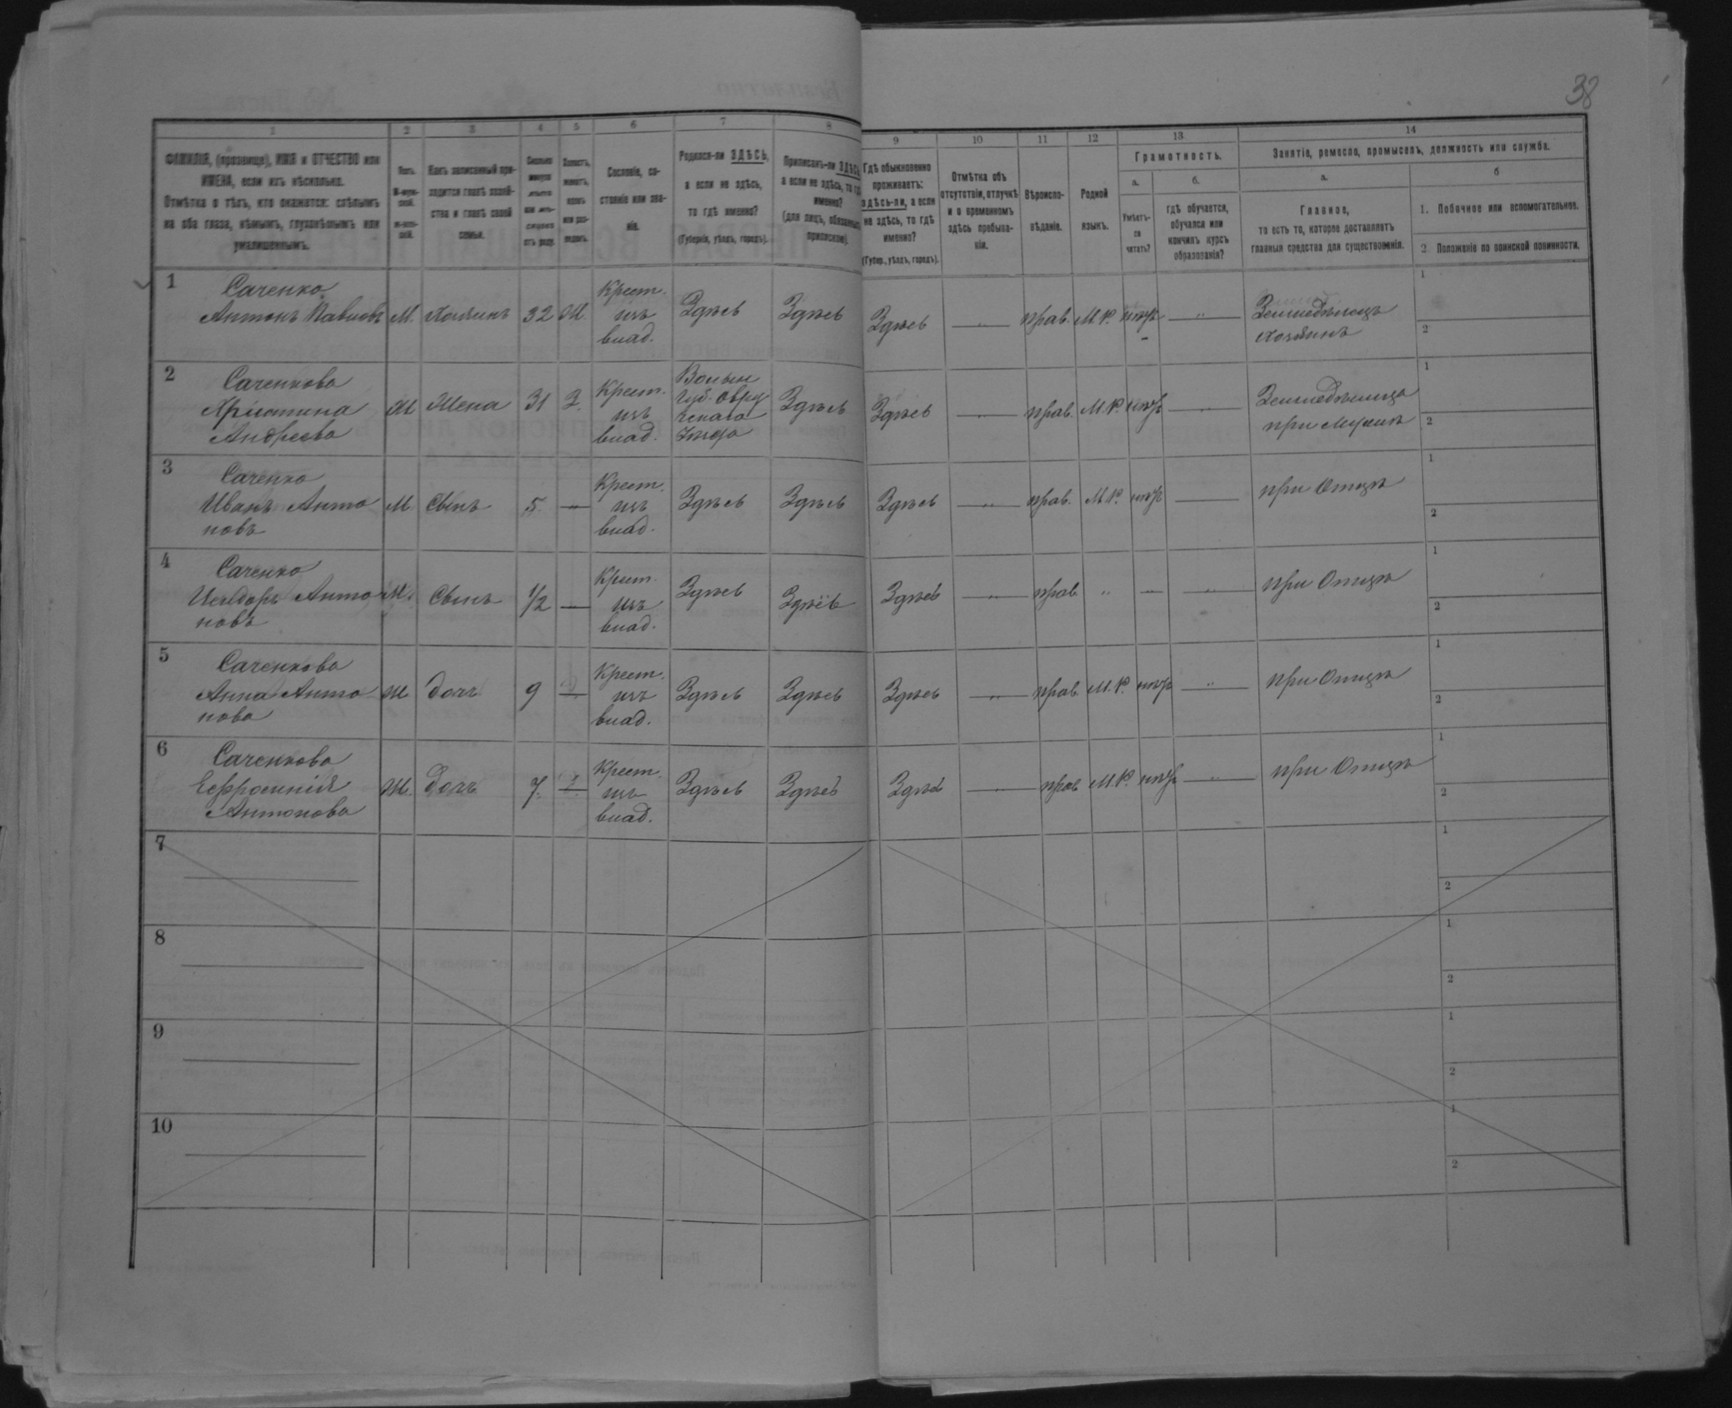 38
1 2 3 4 5 6 7 8 9 10 11 12 13 14
ФАМИЛІЯ, (прозвище), ИМЯ и ОТЧЕСТВО или
ИМЕНА, если ихъ нѣсколько.
Отмѣтка о тѣхъ, кто окажется: слѣпымъ
на оба глаза, нѣмымъ, глухонѣмымъ или
умалишеннымъ.
Полъ.
Какъ записанный при-
ходится главѣ хозяй-
ства и главѣ своей
семьи.
Сословіе, со-
стояніе или зва-
ніе.
Родился-ли ЗДѢСЬ,
а если не здѣсь,
то гдѣ именно?
(Губернія, уѣздъ, городъ).
Приписанъ-ли ЗДѢСЬ,
а если не здѣсь, то гдѣ
именно?
(для лицъ, обязанныхъ
припискою).
Гдѣ обыкновенно
проживаетъ:
здѣсь-ли, а если
не здѣсь, то гдѣ
именно?
(Губер., уѣздъ, городъ).
Отмѣтка объ
отсутствіи, отлучкѣ
и о временномъ
здѣсь пребыва-
ніи.
Вѣроиспо-
вѣданіе.
Родной
языкъ.
Грамотность.
а.
Умѣетъ-
ли
читать?
б.
гдѣ обучается,
обучался или
кончилъ курсъ
образованія?
Занятіе, ремесло, промыселъ, должность или служба.
а.
Главное,
то есть то, которое доставляетъ
главныя средства для существованія.
б
1. Побочное или вспомогательное.
2. Положеніе по воинской повинности.
1 Саченко
Антонъ Павловъ М. Хозяинъ 32 Ж Крест. изъ влад. Здѣсь Здѣсь Здѣсь — " — прав. М.Р. нѣтъ — " — Земледѣлецъ хозяинъ 1 2
2 Саченкова
Христина
Андреева Ж Жена 31 З. Крест. изъ влад. Волын губ. Овру Здѣсь Здѣсь — " — прав. М.Р. нѣтъ — " — Земледѣлица при мужѣ 1 2
3 Саченко
Иванъ Анто
новъ М. Сынъ 5 — Крест. изъ влад. Здѣсь Здѣсь Здѣсь — " — прав. М.Р. нѣтъ — " — при Отцѣ 1 2
4 Саченко
Исидоръ Анто
новъ М. Сынъ 1/2 — Крест. изъ влад. Здѣсь Здѣсь Здѣсь — " — прав " — — " — при Отцѣ 1 2
5 Саченкова
Анна Анто
нова Ж дочь 9 — Крест. изъ влад. Здѣсь Здѣсь Здѣсь — " — прав М.Р. нѣтъ — " — при Отцѣ 1 2
6 Саченкова
Ефросинія
Антонова Ж. дочь 7 — Крест. изъ влад. Здѣсь Здѣсь Здѣсь — " — прав М.Р. нѣтъ — " — при Отцѣ 1 2
7 1 2
8 1 2
9 1 2
10 1 2